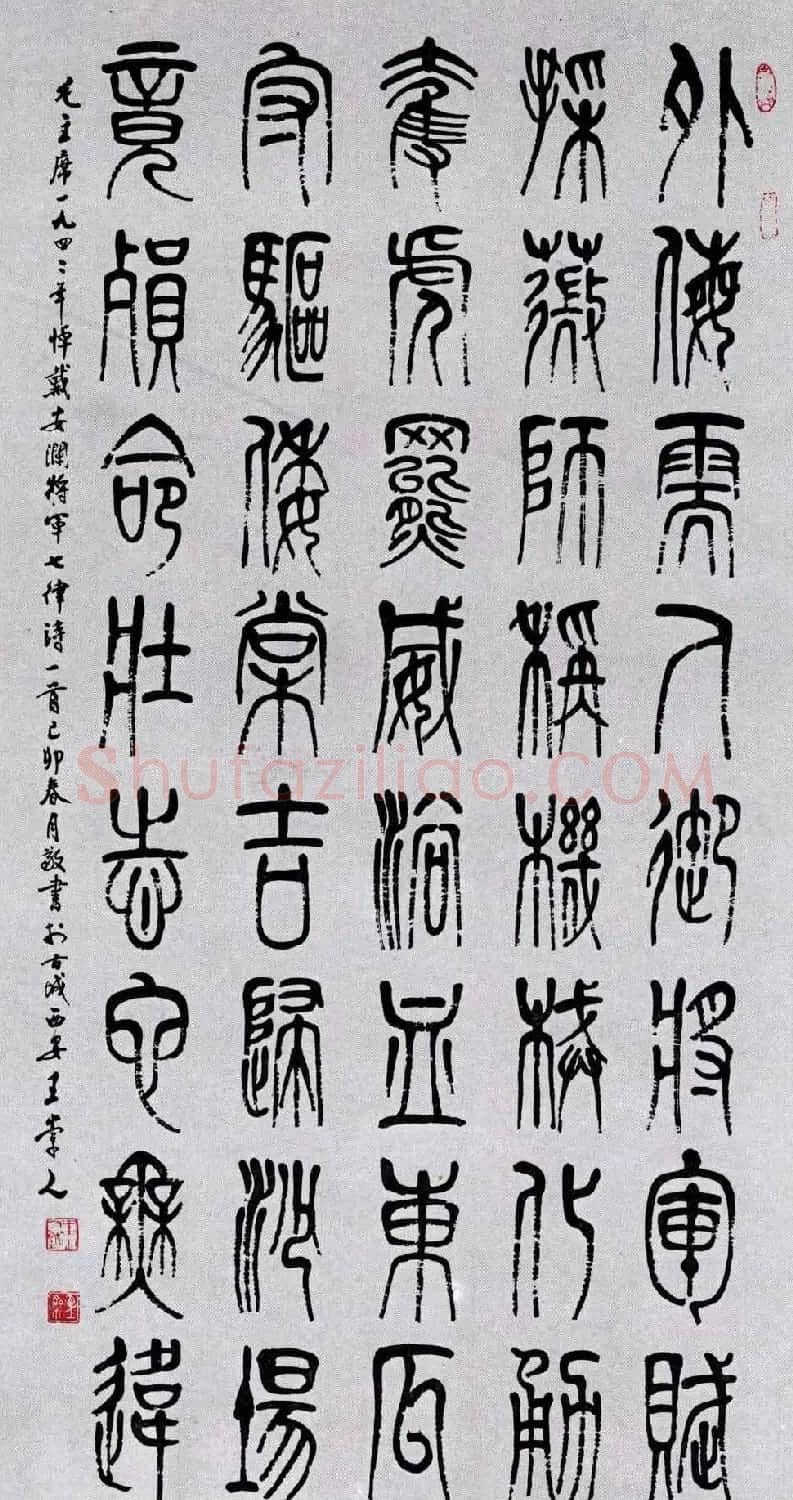 外侮需人御將軍賦
採薇師稱機械化勇
奪虎羆威浴血東瓜
守驅倭棠吉歸沙場
竟殞命壯志也無違
毛主席一九四二年悼戴安瀾將軍七律詩一首己卯春月敬書於古城西安王崇人
Shufaziliao.COM